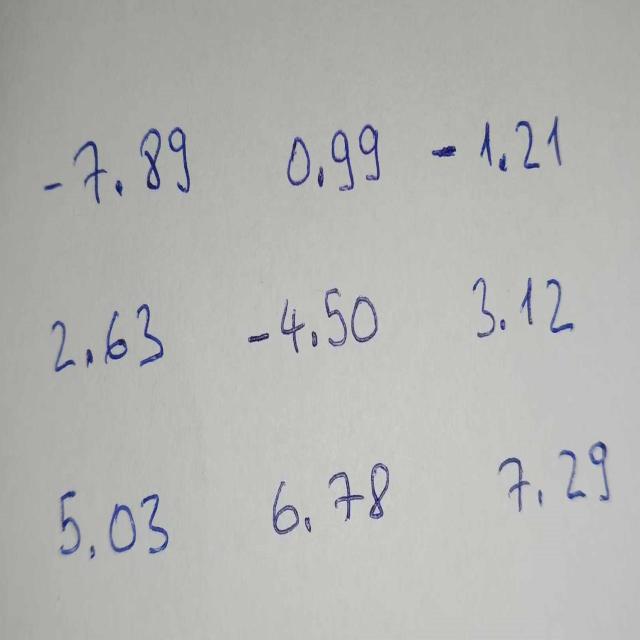 -7.89 0.99 -1.21
2.63 -4.50 3.12
5.03 6.78 7.29